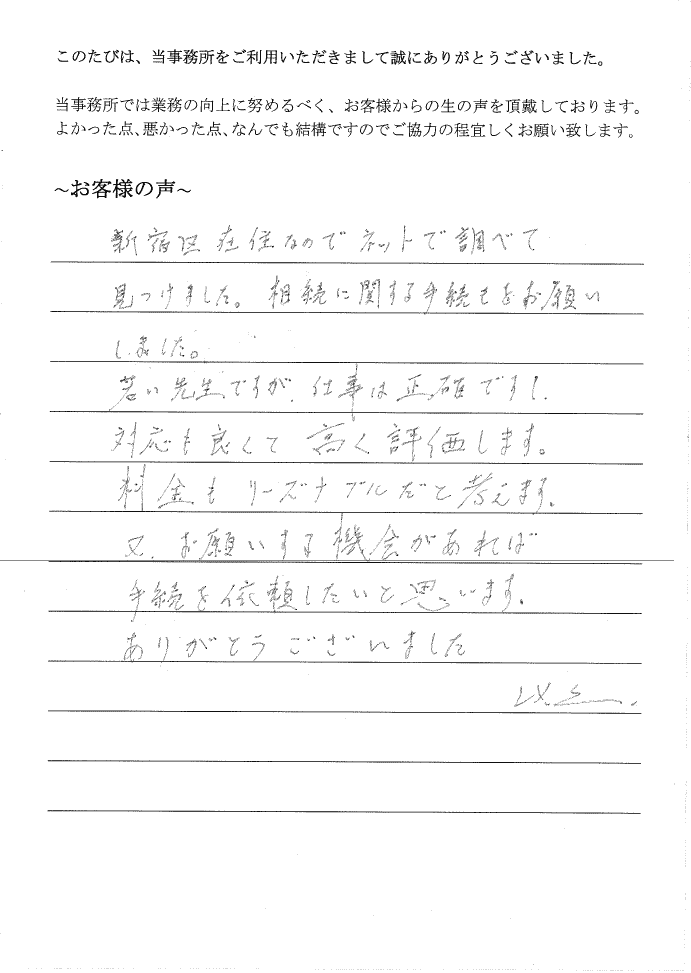 このたびは、当事務所をご利用いただきまして誠にありがとうございました。
当事務所では業務の向上に努めるべく、お客様からの生の声を頂戴しております。
よかった点、悪かった点、なんでも結構ですのでご協力の程宜しくお願い致します。
～お客様の声～
新宿区在住なのでネットで調べて
見つけました。相続に関する手続きをお願い
しました。
若い先生ですが、仕事は正確ですし、
対応も良くて高く評価します。
料金もリーズナブルだと考えます。
又、お願いする機会があれば
手続を依頼したいと思います。
ありがとうございました
以上.